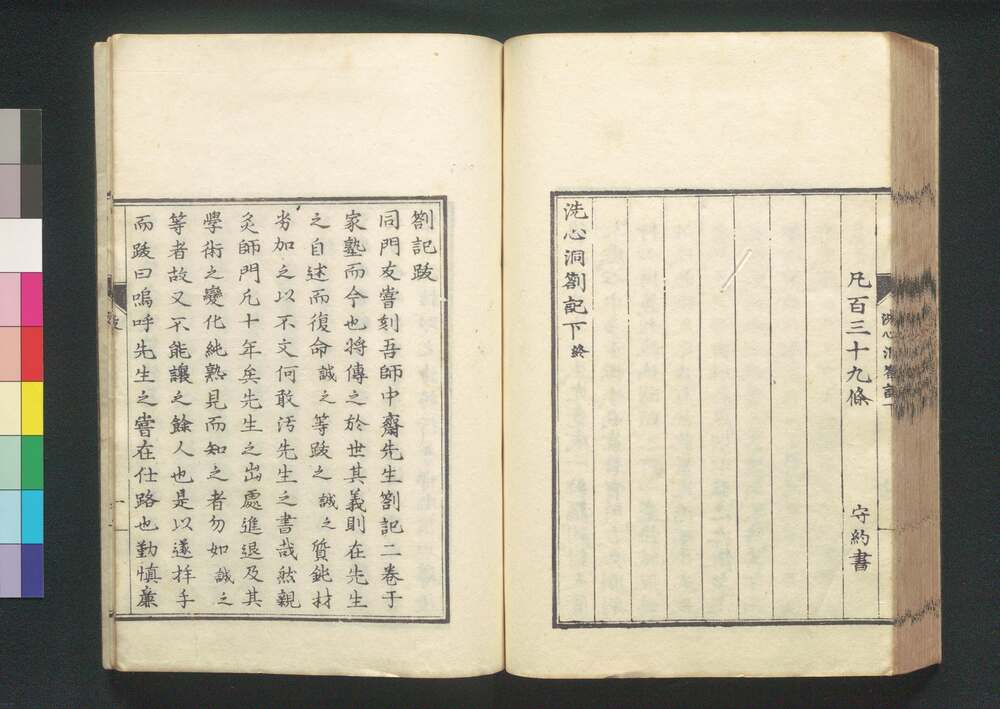 凡百三十九條　守約書
洗心洞劄記下終
劄記跋
同門友嘗刻吾師中齋先生劄記二卷于
家塾而今也將傳之於世其義則在先生
之自述而復命誠之等跋之誠之質鈍材
劣加之以不文何敢汚先生之書哉然親
炙師門凡十年矣先生之出處進退及其
學術之變化純熟見而知之者勿如誠之
等者故又不能讓之餘人也是以遂拜手
而跋曰嗚呼先生之嘗在仕路也勤慎廉